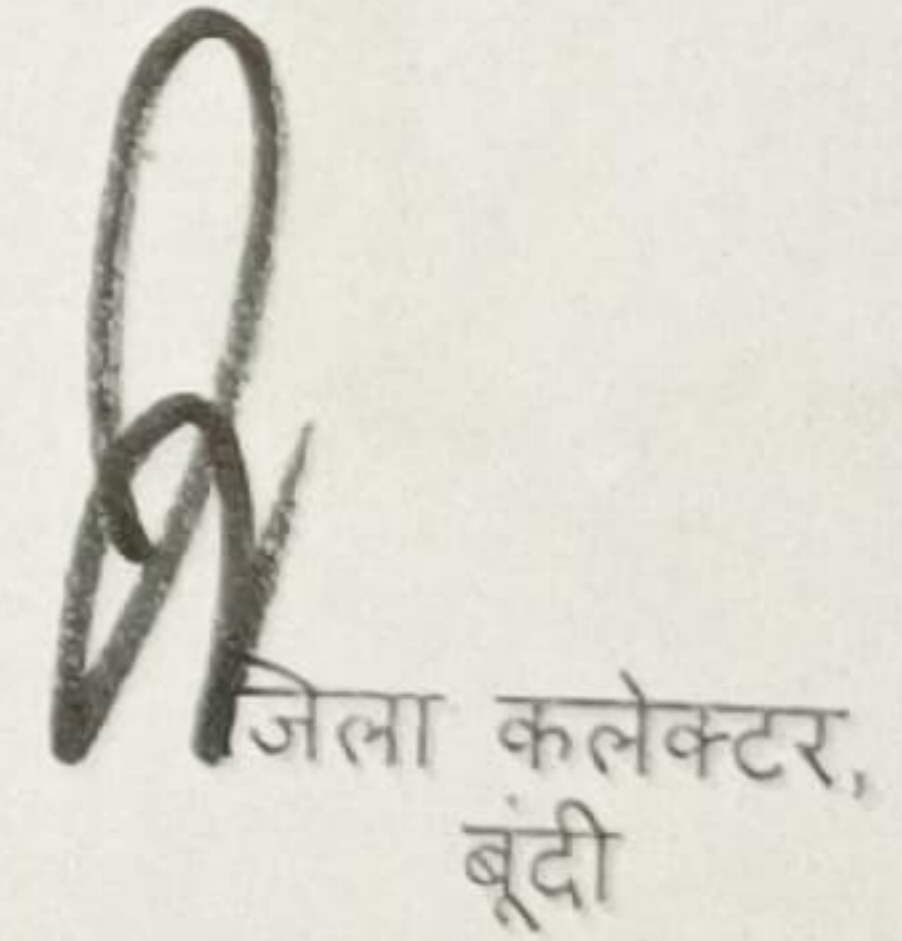 जिला कलेक्टर,
बूंदी